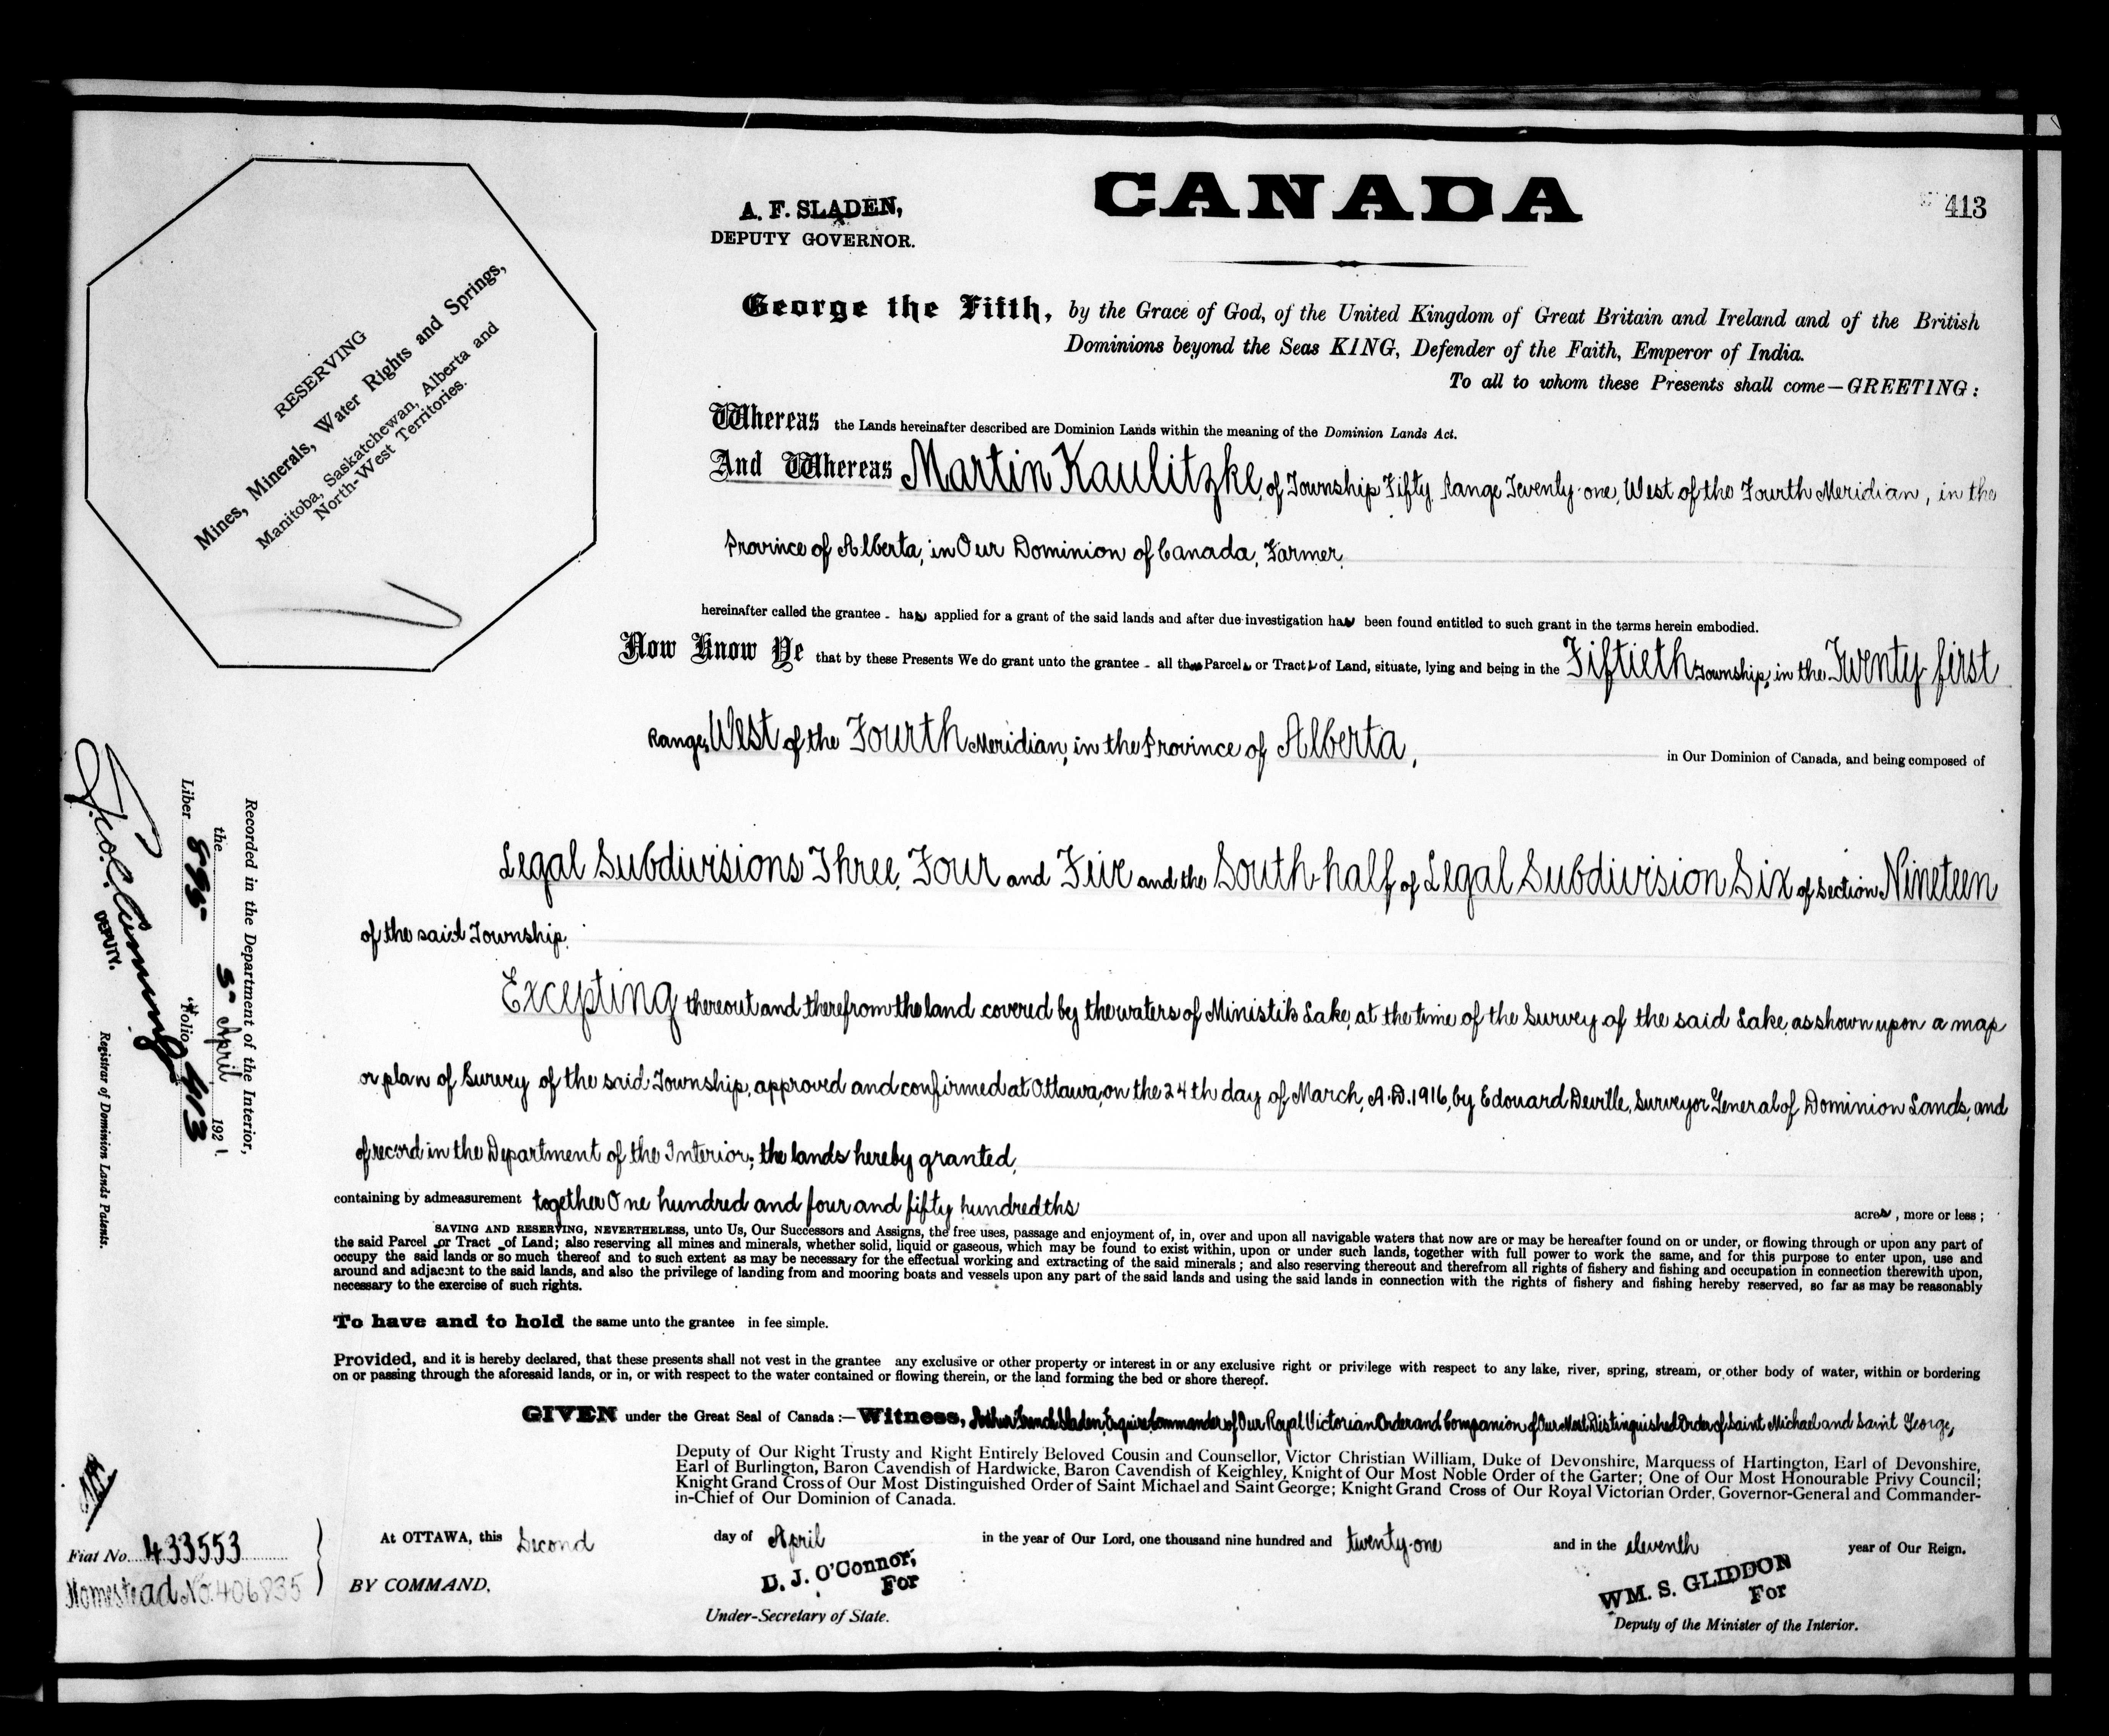 CANADA
413
A. F. SLADEN,
DEPUTY GOVERNOR.
RESERVING
Mines, Minerals, Water Rights and Springs,
Manitoba, Saskatchewan, Alberta and
North-West Territories.
George the Fifth, by the Grace of God, of the United Kingdom of Great Britain and Ireland and of the British
Dominions beyond the Seas KING, Defender of the Faith, Emperor of India.
To all to whom these Presents shall come—GREETING:
Whereas the Lands hereinafter described are Dominion Lands within the meaning of the Dominion Lands Act.
And Whereas Martin Kaulitzke, of Township Fifty, Range Twenty-one, West of the Fourth Meridian, in the
Province of Alberta, in Our Dominion of Canada, Farmer,
hereinafter called the grantee - has applied for a grant of the said lands and after due investigation has been found entitled to such grant in the terms herein embodied.
Now Know Ye that by these Presents We do grant unto the grantee - all those Parcels or Tracts of Land, situate, lying and being in the Fiftieth Township, in the Twenty-first
Range, West of the Fourth Meridian, in the Province of Alberta, in Our Dominion of Canada, and being composed of
Legal Subdivisions Three, Four and Five and the South-half of Legal Subdivision Six of Section Nineteen
of the said Township.
Excepting thereout and therefrom the land covered by the waters of Ministik Lake, at the time of the Survey of the said Lake, as shown upon a map
or plan of Survey of the said Township, approved and confirmed at Ottawa, on the 24th day of March, A.D. 1916, by Edouard Deville, Surveyor General of Dominion Lands, and
of record in the Department of the Interior; the lands hereby granted,
containing by admeasurement together One hundred and four and fifty hundredths acres, more or less;
SAVING AND RESERVING, NEVERTHELESS, unto Us, Our Successors and Assigns, the free uses, passage and enjoyment of, in, over and upon all navigable waters that now are or may be hereafter found on or under, or flowing through or upon any part of
the said Parcel or Tract of Land; also reserving all mines and minerals, whether solid, liquid or gaseous, which may be found to exist within, upon or under such lands, together with full power to work the same, and for this purpose to enter upon, use and
occupy the said lands or so much thereof and to such extent as may be necessary for the effectual working and extracting of the said minerals; and also reserving thereout and therefrom all rights of fishery and fishing and occupation in connection therewith upon,
around and adjacent to the said lands, and also the privilege of landing from and mooring boats and vessels upon any part of the said lands and using the said lands in connection with the rights of fishery and fishing hereby reserved, so far as may be reasonably
necessary to the exercise of such rights.
To have and to hold the same unto the grantee in fee simple.
Provided, and it is hereby declared, that these presents shall not vest in the grantee any exclusive or other property or interest in or any exclusive right or privilege with respect to any lake, river, spring, stream, or other body of water, within or bordering
on or passing through the aforesaid lands, or in, or with respect to the water contained or flowing therein, or the land forming the bed or shore thereof.
GIVEN under the Great Seal of Canada:—Witness, Arthur French Sladen, Esquire, Commander of Our Royal Victorian Order and Companion of Our Most Distinguished Order of Saint Michael and Saint George,
Deputy of Our Right Trusty and Right Entirely Beloved Cousin and Counsellor, Victor Christian William, Duke of Devonshire, Marquess of Hartington, Earl of Devonshire,
Earl of Burlington, Baron Cavendish of Hardwicke, Baron Cavendish of Keighley, Knight of Our Most Noble Order of the Garter; One of Our Most Honourable Privy Council;
Knight Grand Cross of Our Most Distinguished Order of Saint Michael and Saint George; Knight Grand Cross of Our Royal Victorian Order, Governor-General and Commander-
in-Chief of Our Dominion of Canada.
At OTTAWA, this Second day of April in the year of Our Lord, one thousand nine hundred and twenty-one and in the eleventh year of Our Reign.
BY COMMAND,
D. J. O'Connor,
For
Under-Secretary of State.
WM. S. GLIDDON
For
Deputy of the Minister of the Interior.
Fiat No. 433553
Homestead No. 406835
Recorded in the Department of the Interior,
the 5" April 1921.
Liber 895 Folio 413
DEPUTY.
Registrar of Dominion Lands Patents.